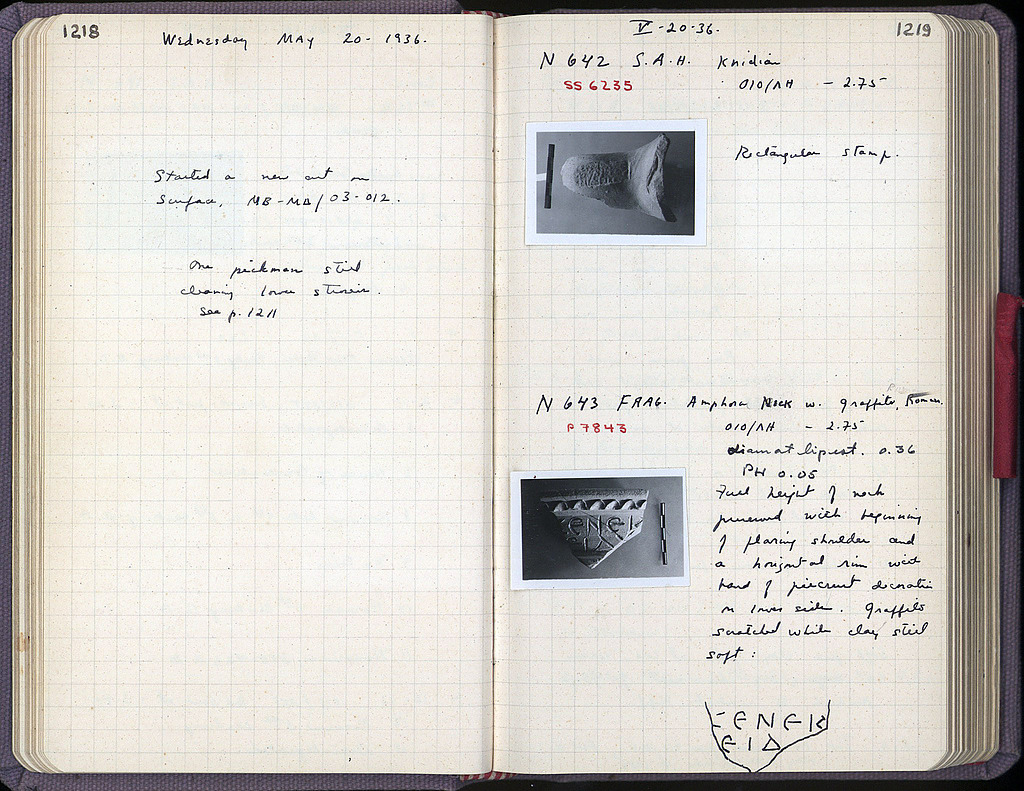 1218
Wednesday MAY 20 - 1936.
Started a new cut on
Surface, MB-MΔ/03-012.
One pickman still
cleaning lower stosis.
See p. 1211
1219
V-20-36.
N 642 S.A.H. Knidian
SS 6235
010/ΛH - 2.75
Rectangular stamp.
N 643 FRAG. Amphora Neck w. graffito, Roman.
P 7843
010/ΛH - 2.75
diam at lip est. 0.36
PH 0.05
Full height of neck
preserved with beginning
of flaring shoulder and
a horizontal rim with
band of piecrust decoration
on lower side. Graffito
scratched while clay still
soft:
ΕΝΕΙ
ΕΙ
ΕΝΕΚ
ΕΙΔ